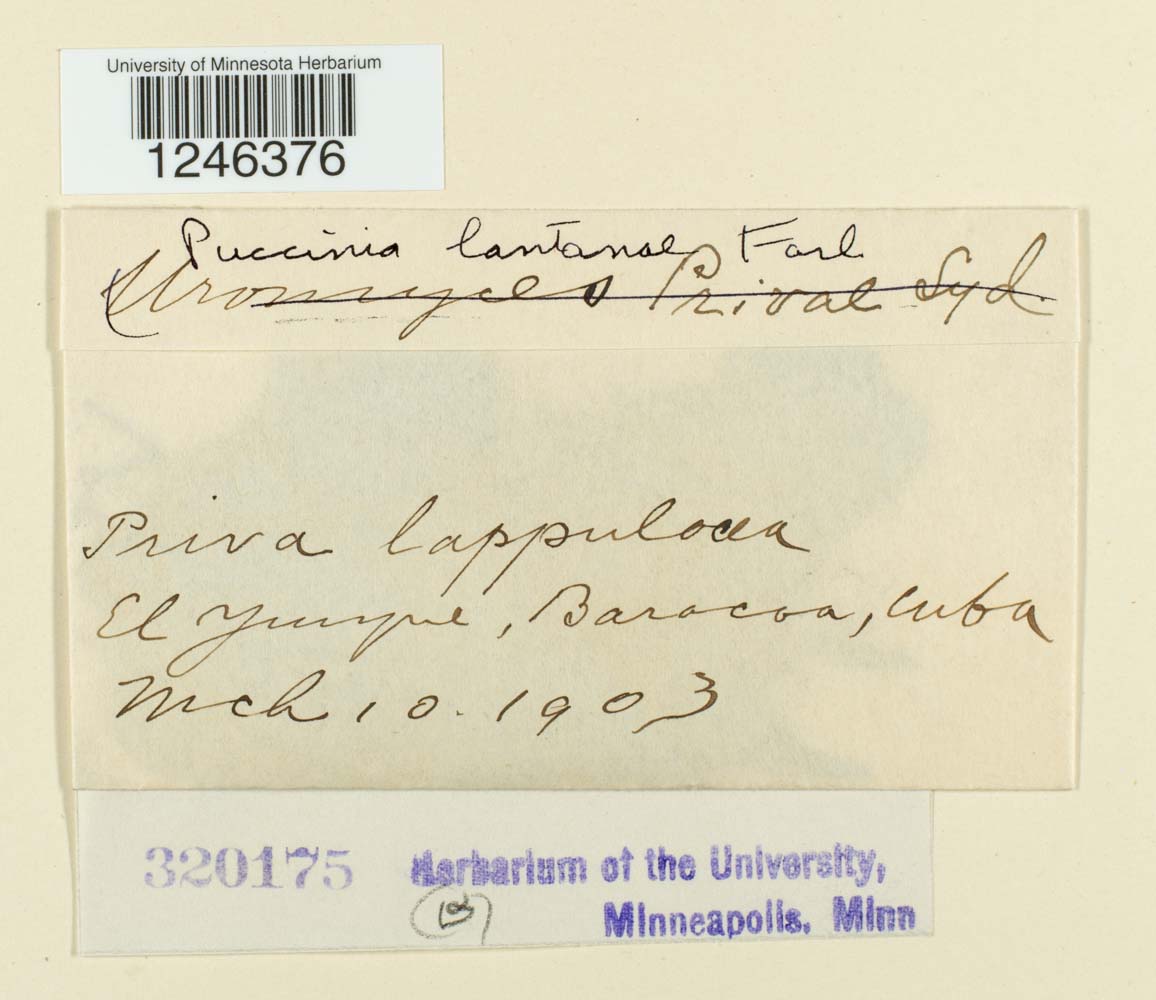 University of Minnesota Herbarium
1246376
Puccinia lantanae Farl
Uromyces Privae Syd.
Priva lappulacea
El Yunque, Baracoa, Cuba
Mch 10. 1903
320175
Herbarium of the University,
Minneapolis, Minn